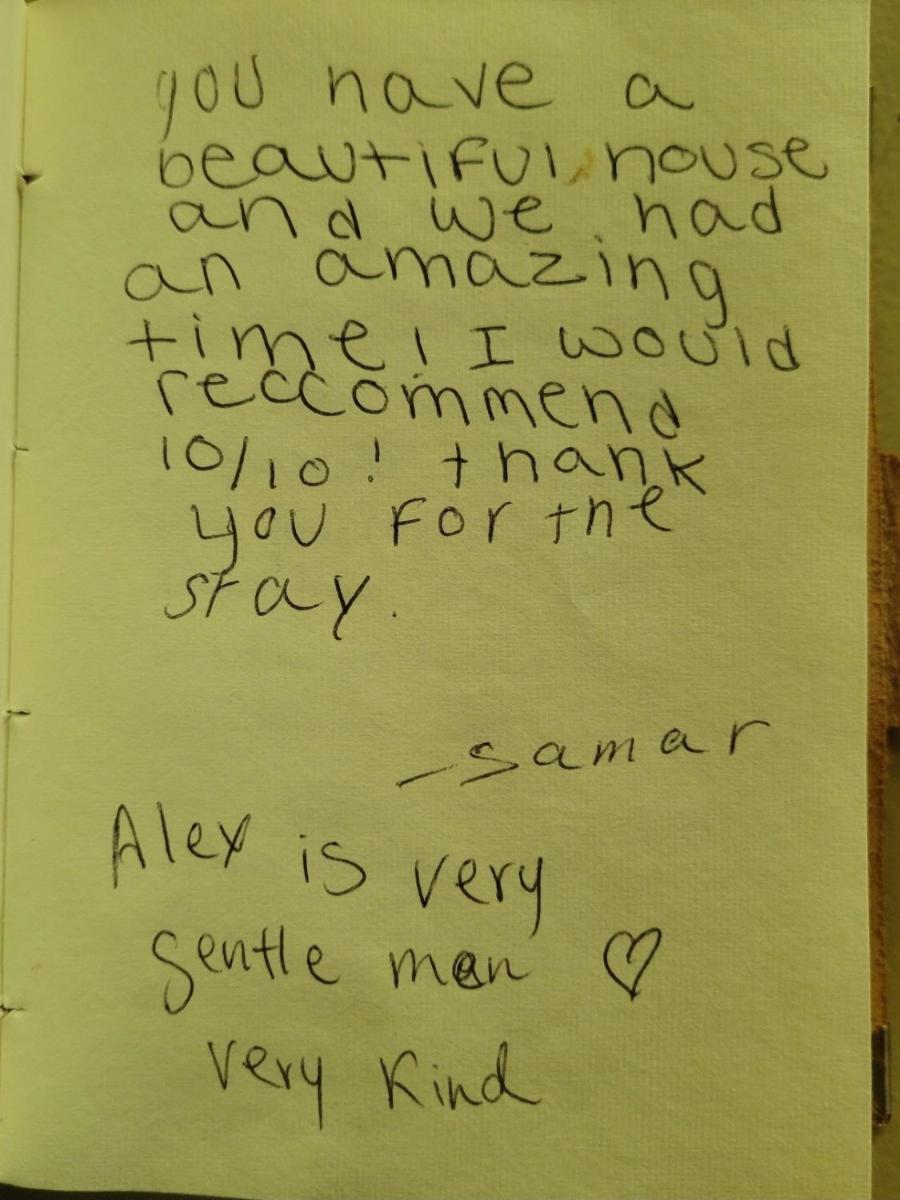 you have a
beautiful house
and we had
an amazing
time! I would
reccommend
10/10! thank
you for the
stay.
- samar
Alex is very
gentle man ♡
very kind